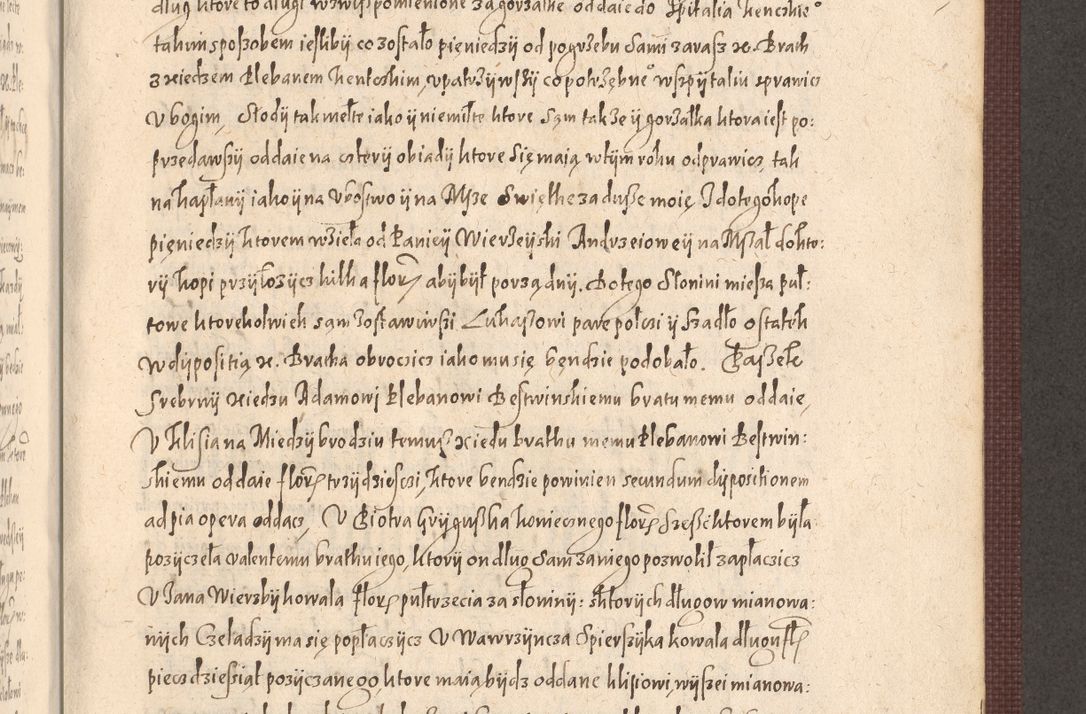 dług ktore to długi wzwysz pomienione za gorzałke oddaie do Spitalia kenczkie°
takim sposobem ieslibÿ co zostało pięniedzÿ od pogrzebu sami zaras x. Brath
z xiedzem Plebanem kentczkim, upatrzÿwszÿ co potrzębne° w szpÿtaliu sprawicz
Ubogim, Słodÿ tak mełte iako ÿ niemiłte ktore sąm takze ÿ gorzałka ktora iest po:
przedawszÿ oddaie na czterÿ obiadÿ ktore się maią w tÿm roku odprawicz, tak
na kapłanÿ iako ÿ na Ubostwo ÿ na Msze Swięthe za dusze moię. I do tego kope
pięniedzÿ ktorem wzieła od Paniej Wierzeÿski Andrzeiowej na Mszał do kto:
rÿ kopi przÿłozÿcz kilka flor abÿ bÿł porządnÿ. Do tego Słonini miesza puł:
towe ktorekolwiek sąm zostawiwszi Lukaszowi pare połczi ÿ sadło ostatek
w dÿpositią x. Bratka obroczicz iako mu się będzie podobało. Paszek
srebrnÿ xiedzu Adamowi Plebanowi Bestwinskiemu bratu memu oddaie,
U Klisia na Miedzÿbrodziu temusz xiedu brathu memu Plebanowi Bestwin:
skiemu oddaie flor trzÿdziesczi, ktore bendzie powinien secundum dÿpositionem
ad pia opera oddacz, U Piotra Grÿguszka koniecznego flor szesc ktorem bÿła
pozÿczeła valentemu brathu iego, ktorÿ on dług sam za niego pozwolił zapłaczicz
U Jana Wierzbÿ kowala flor pułtrzecia za słoninÿ: s ktorÿch długow mianowa:
nÿch Czeladzÿ ma się popłaczÿcz U Wawrzÿncza Spierszÿka kowala długu fl
piecz dziesiąt pozÿczanego, ktore maią bÿdz oddane klisiowi, wÿszei mianowa: